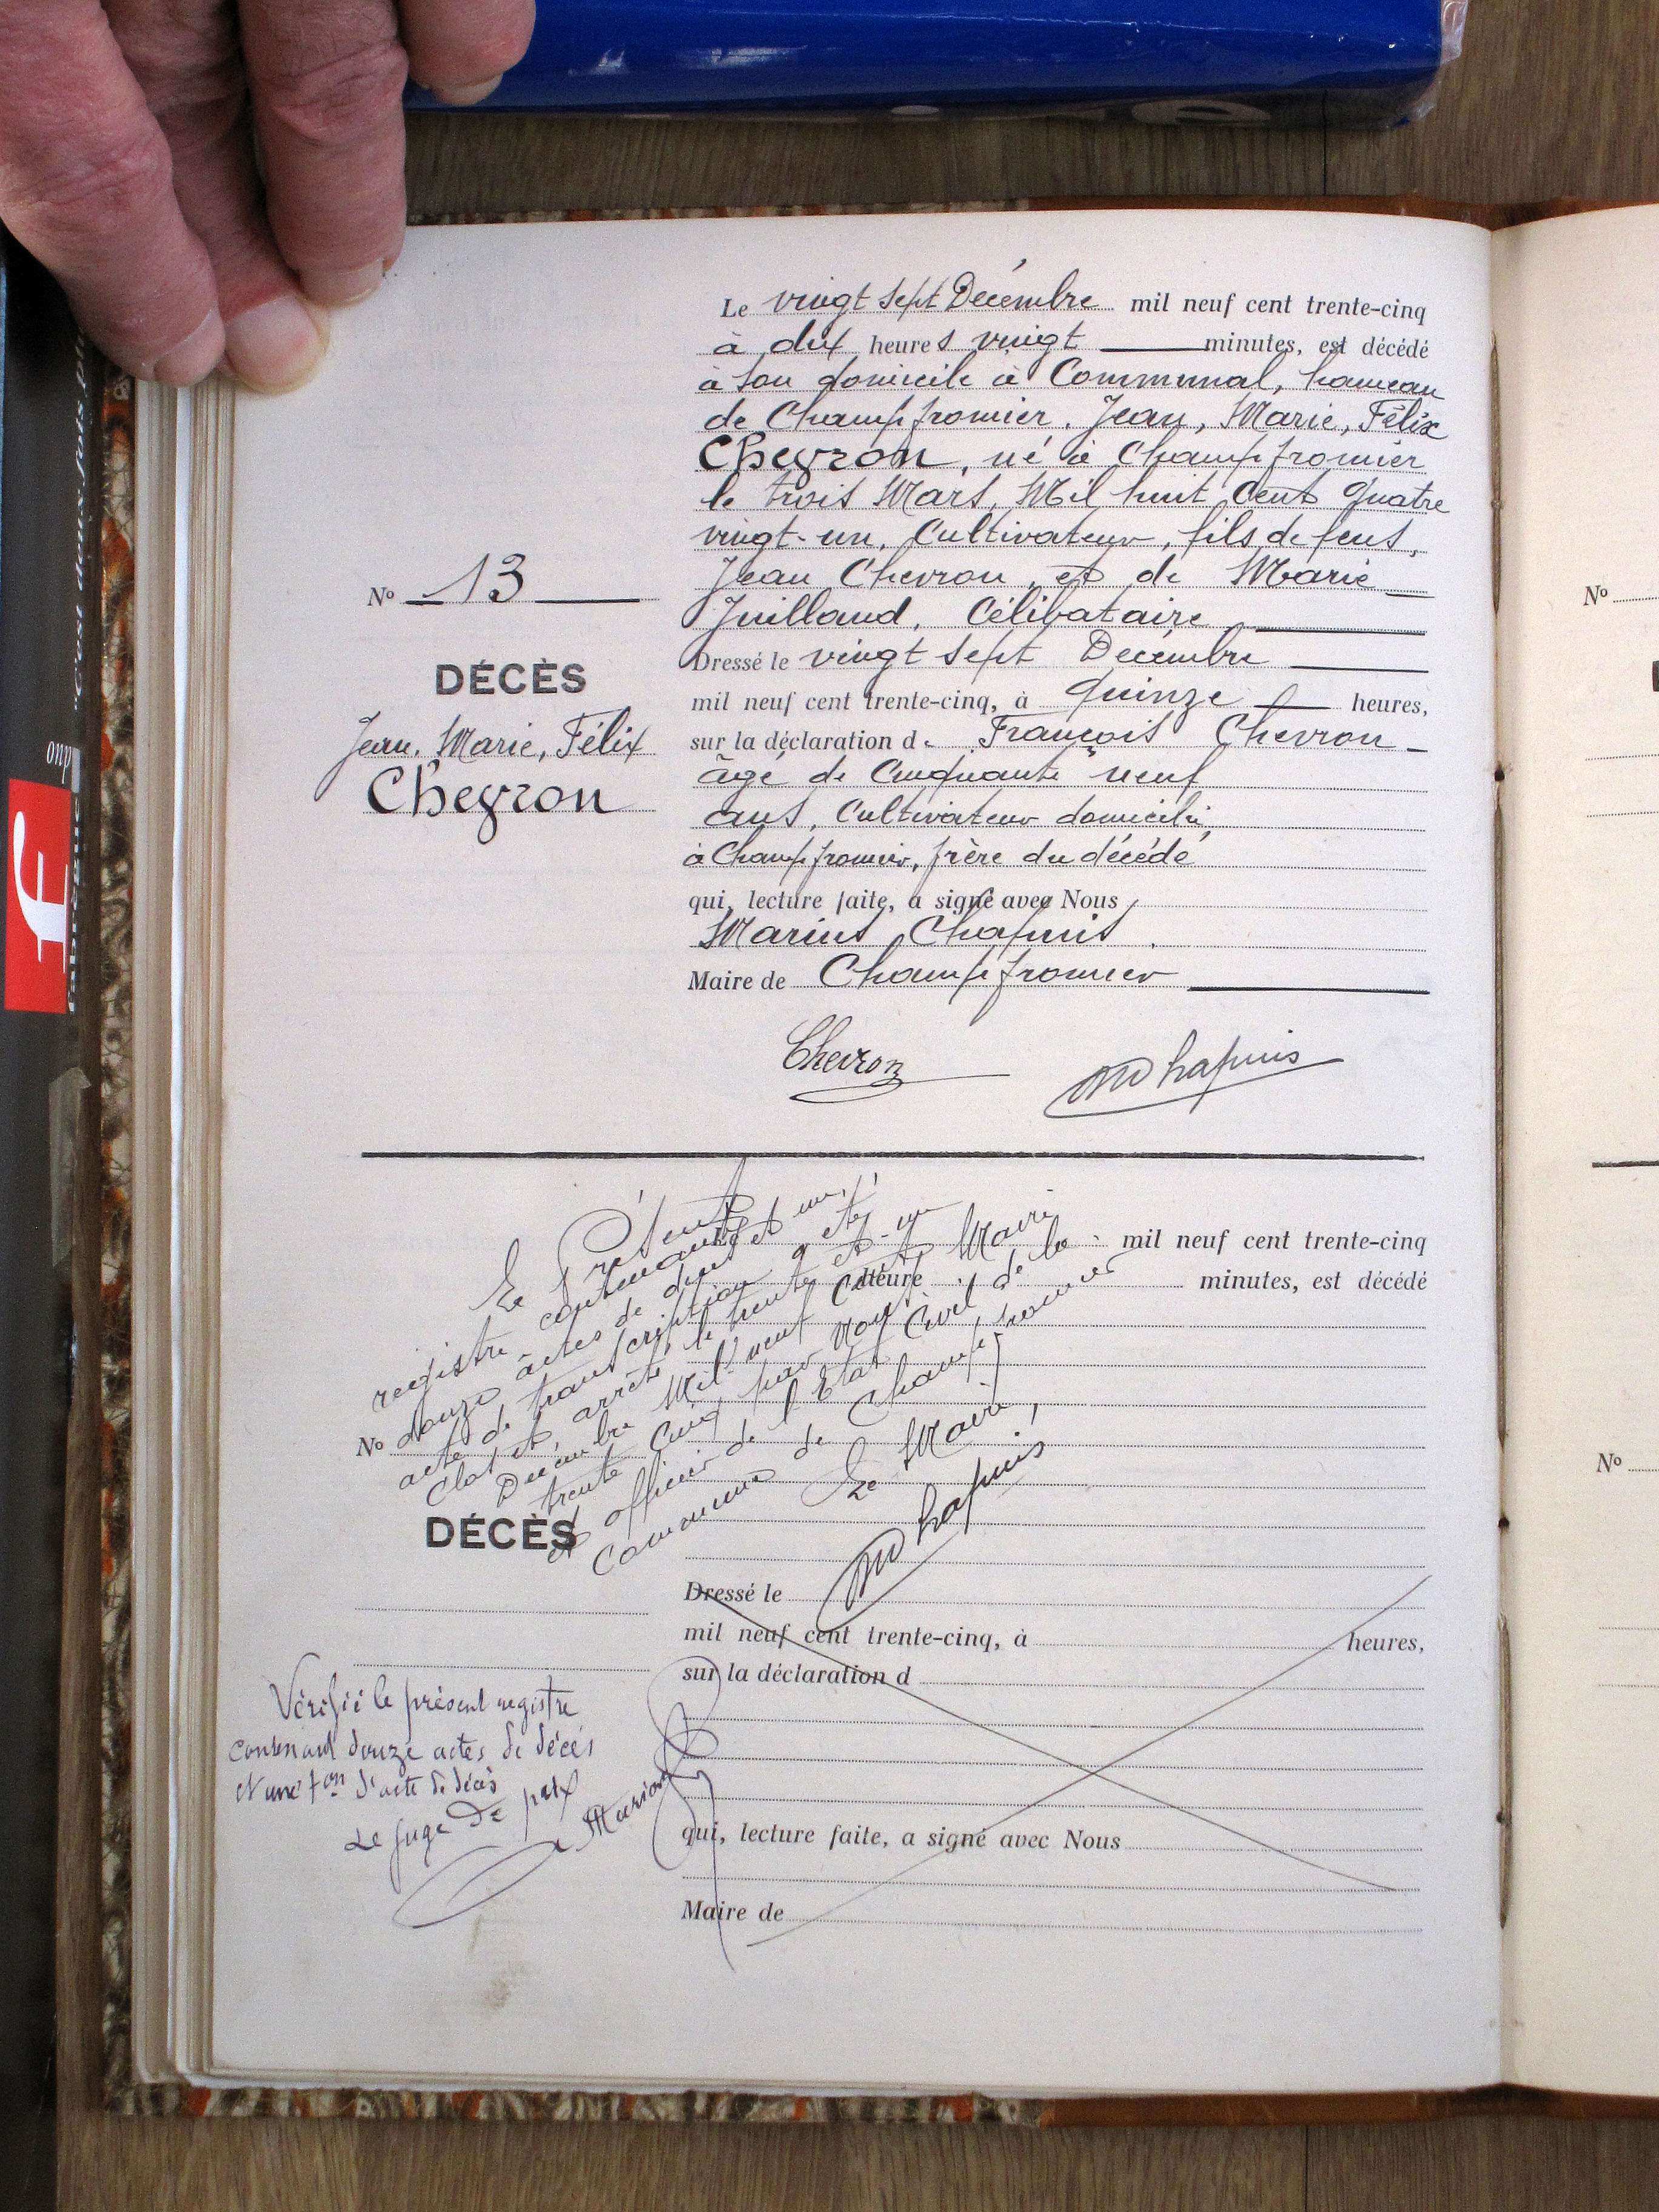 Le vingt sept Décembre mil neuf cent trente-cinq
à dix heures vingt minutes, est décédé
à son domicile à Communal, hameau
de Champfromier, Jean, Marie, Félix
Chevron, né à Champfromier
le trois Mars, Mil huit cent quatre
vingt-un, Cultivateur, fils de feus,
Jean Chevron, et de Marie
Juilland, Célibataire
No 13
DÉCÈS
Jean, Marie, Félix
Chevron
Dressé le vingt sept Décembre
mil neuf cent trente-cinq, à quinze heures,
sur la déclaration de François Chevron
âgé de Cinquante neuf
ans, Cultivateur domicilié
à Champfromier, frère du décédé
qui, lecture faite, a signé avec Nous
Marius Chapuis
Maire de Champfromier
Chevron
MChapuis
Le Présent
registre contenant
douze actes de décès et un
acte de transcription a été
clos et arrêté le trente-et-un
Décembre Mil neuf cent
trente cinq par Nous, Maire
et officier de l'Etat Civil de la
Commune de Champfromier
Le Maire,
MChapuis
mil neuf cent trente-cinq
heure minutes, est décédé
No
DÉCÈS
Dressé le
mil neuf cent trente-cinq, à heures,
sur la déclaration d
qui, lecture faite, a signé avec Nous
Maire de
Vérifié le présent registre
contenant douze actes de décès
et une ton d'acte de décès
Le juge de paix
No
No
f
c'est deux fois